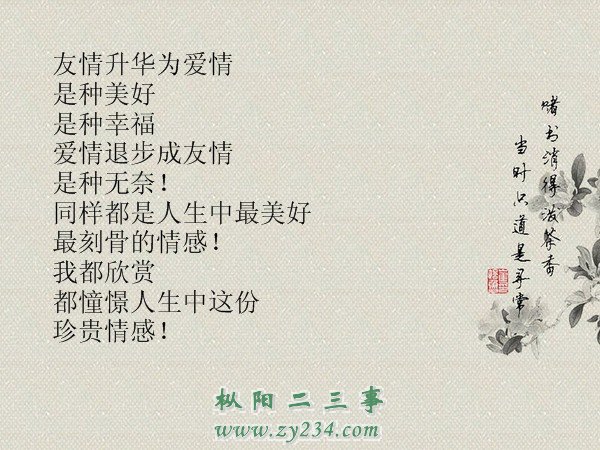 友情升华为爱情
是种美好
是种幸福
爱情退步成友情
是种无奈！
同样都是人生中最美好
最刻骨的情感！
我都欣赏
都憧憬人生中这份
珍贵情感！
赌书消得泼茶香
当时只道是寻常
枞阳二三事
www.zy234.com